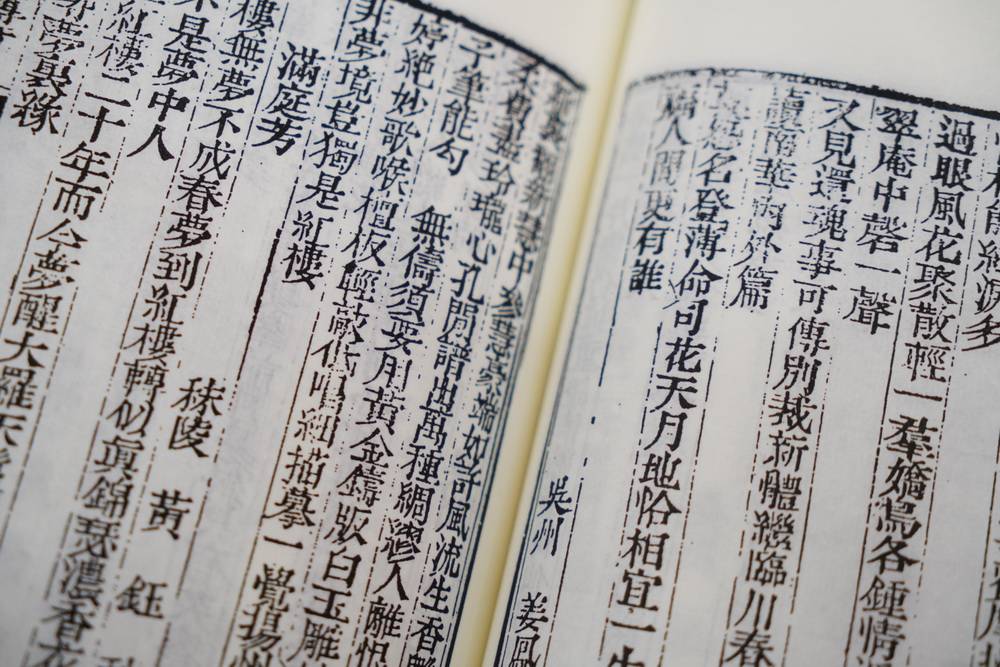 演多
過眼風花聚散輕一羣嬌鳥各鍾情
翠庵中磬一聲
又見還魂事可傳別裁新體繼臨川春
讀南華內外篇
名登薄命司花天月地恰相宜一生
人間更有誰
吳州 姜
中參慧 端如許風流生香
玲瓏心孔間譜出萬種綢繆人離恨
子筆能勾 無儔須要用黃金鑄版白玉雕
婷絕妙歌喉檀板輕敲低唱細描摹一覺揚州
非夢境豈獨是紅樓
滿庭芳
秣陵 黃 鈺
樓無夢不成春夢到紅樓轉似眞錦瑟濃香
不是夢中人
紅樓二十年而今夢醒大羅天
夢裏緣